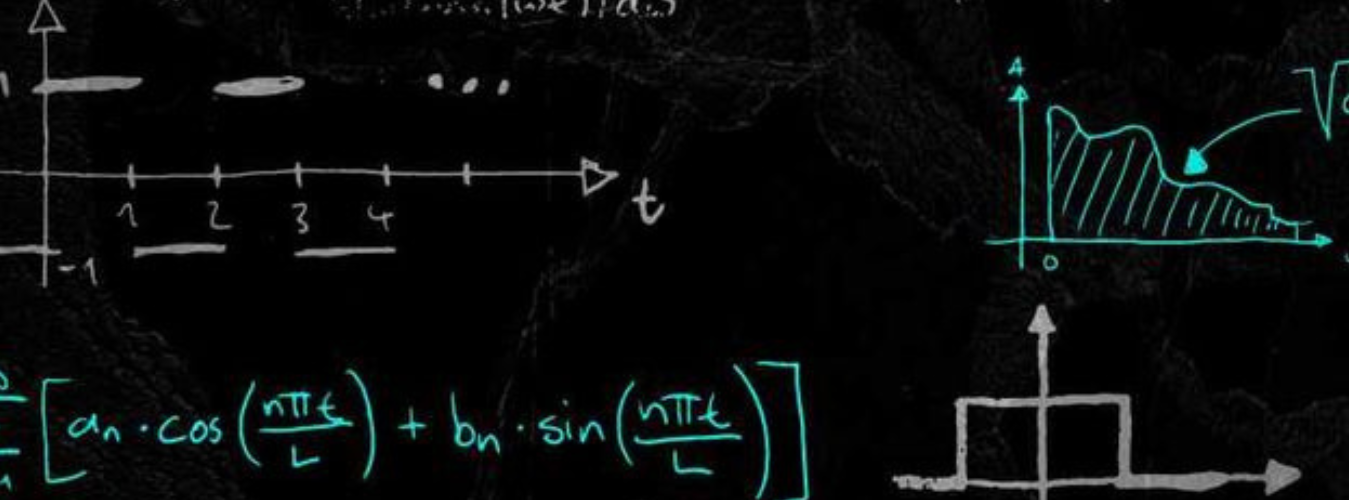 1
A
1 2 3 4
t
-1
0
[an · cos (nπt/L) + bn · sin (nπt/L)]